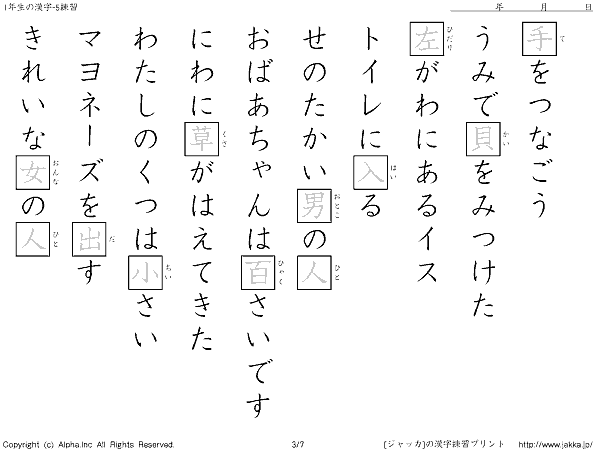 1年生の漢字-5練習
年 月 日
手をつなごう
て
うみで貝をみつけた
かい
左がわにあるイス
ひだり
トイレに入る
はい
せのたかい男の人
おとこ
ひと
おばあちゃんは百さいです
ひゃく
にわに草がはえてきた
くさ
わたしのくつは小さい
ちい
マヨネーズを出す
だ
きれいな女の人
おんな
ひと
Copyright (c) Alpha.Inc All Rights Reserved.
3/7
[ジャッカ]の漢字練習プリント http://www.jakka.jp/